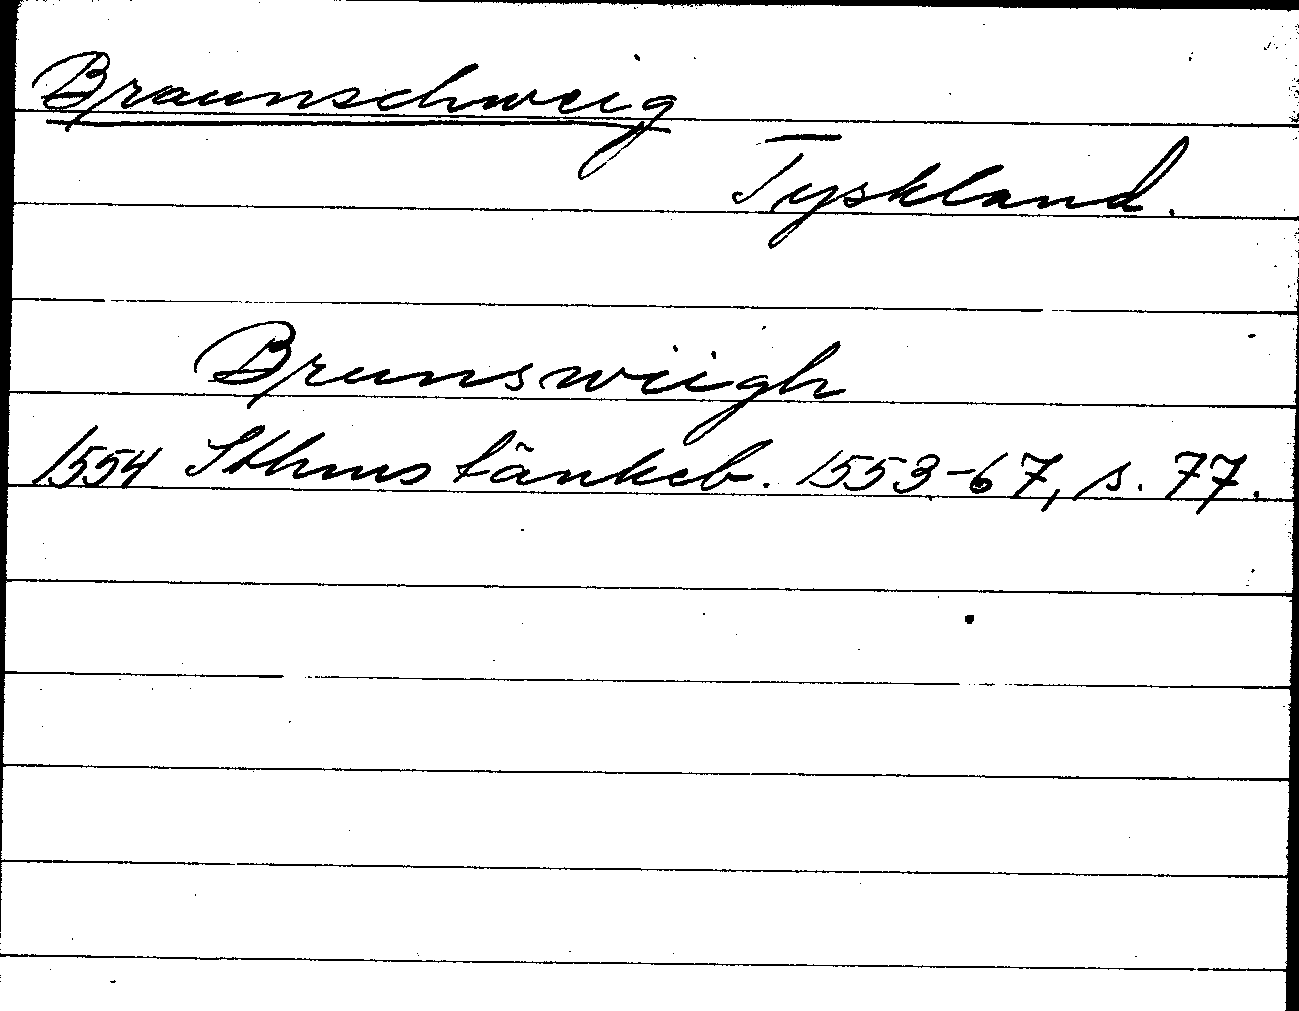 Braunschweig
Tyskland.
Brunswiigh
1554 Sthms tänkeb. 1553-67, s. 77.